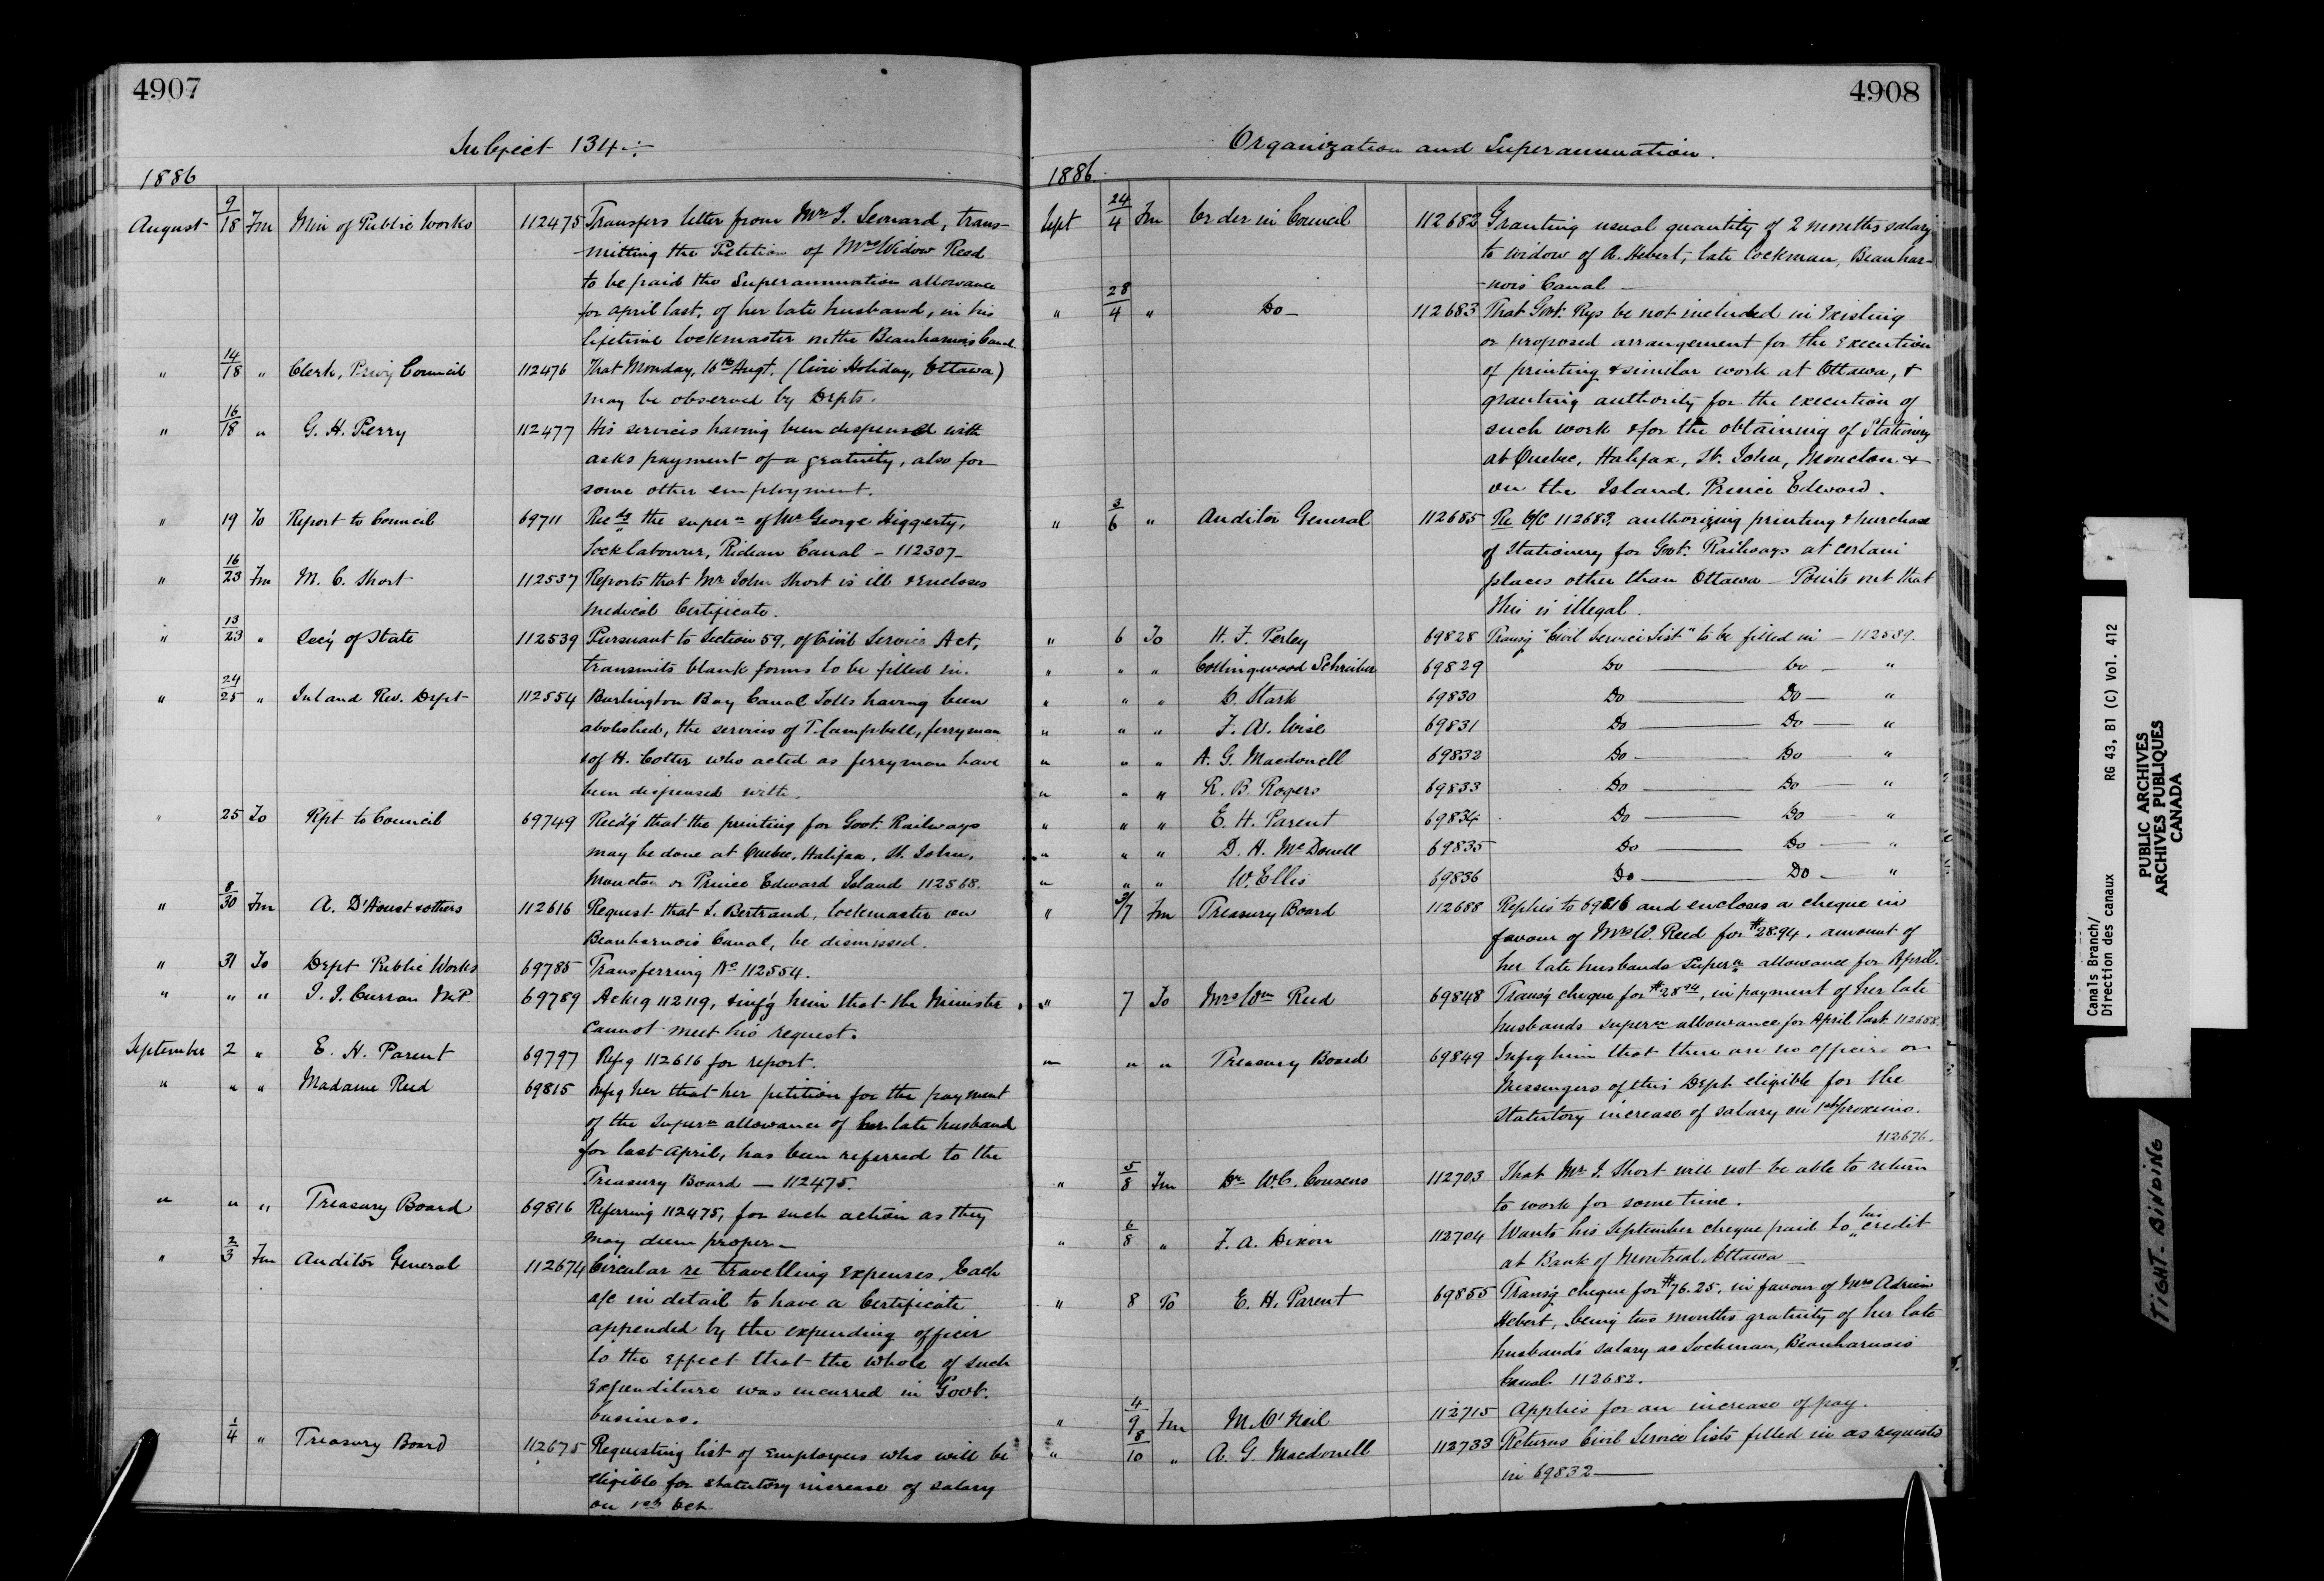 4907
Subject 134 :-
1886
August 9/18 Fm Min of Public Works 112475 Transfers letter from Mr J. Leonard, trans-
-mitting the Petition of Mrs Widow Reed
to be paid the Superannuation allowance
for April last, of her late husband, in his
lifetime lockmaster on the Beauharnois Canal.
" 14/18 " Clerk, Privy Council 112476 That Monday, 16th Augt. (Civic Holiday, Ottawa)
may be observed by Depts.
" 16/18 " G. H. Perry 112477 His services having been dispensed with
asks payment of a gratuity, also for
some other employment.
" 19 To Report to Council 69711 Recdg the supern of Mr George Higgerty,
Lock labourer, Rideau Canal - 112307 -
" 16/23 Fm M. C. Short 112537 Reports that Mr John Short is ill & encloses
Medical Certificate.
" 13/23 " Secy of State 112539 Pursuant to Section 59, of Civil Service Act,
transmits blank forms to be filled in.
" 24/25 " Inland Rev. Dept 112554 Burlington Bay Canal Tolls having been
abolished, the services of T. Campbell, ferryman
& of H. Cotter who acted as ferryman have
been dispensed with.
" 25 To Rpt to Council 69749 Recdg that the printing for Govt. Railways
may be done at Quebec, Halifax, St. John,
Moncton or Prince Edward Island 112568.
" 8/30 Fm A. D'Aoust & others 112616 Request that L. Bertrand, lockmaster on
Beauharnois Canal, be dismissed.
" 31 To Dept Public Works 69785 Transferring No 112554.
" " " J. J. Curran M.P. 69789 Ackg 112119, & infg him that the Minister
cannot meet his request.
September 2 " E. H. Parent 69797 Refg 112616 for report.
" " " Madame Reed 69815 Infg her that her petition for the payment
of the Supern allowance of her late husband
for last April, has been referred to the
Treasury Board — 112475.
" " " Treasury Board 69816 Referring 112475, for such action as they
may deem proper —
" 2/3 Fm Auditor General 112674 Circular re travelling expenses. Each
a/c in detail to have a Certificate
appended by the expending officer
to the effect that the whole of such
Expenditure was incurred in Govt.
business.
1/4 " Treasury Board 112675 Requesting list of Employees who will be
eligible for statutory increase of salary
on 1st Oct
4908
Organization and Superannuation.
1886.
Sept 24/4 Fm Order in Council 112682 Granting usual quantity of 2 months salary
to widow of A. Hebert, late lockman, Beauhar-
-nois Canal —
" 28/4 " Do — 112683 That Govt. Rys be not included in existing
or proposed arrangement for the execution
of printing & similar work at Ottawa, &
granting authority for the execution of
such work & for the obtaining of Stationery
at Quebec, Halifax, St. John, Moncton &
on the Island Prince Edward.
" 3/6 " Auditor General 112685 Re O/C 112683, authorizing printing & purchase
of Stationery for Govt. Railways at certain
places other than Ottawa — Points out that
this is illegal.
" 6 To H. F. Perley 69828 Transg "Civil Service List" to be filled in — 112539.
" " " Collingwood Schreiber 69829 Do — Do — "
" " " D. Stark 69830 Do — Do — "
" " " F. A. Wise 69831 Do — Do — "
" " " A. G. Macdonell 69832 Do — Do — "
" " " R. B. Rogers 69833 Do — Do — "
" " " E. H. Parent 69834 Do — Do — "
" " " D. H. McDonell 69835 Do — Do — "
" " " W. Ellis 69836 Do — Do — "
" 3/7 Fm Treasury Board 112688 Replies to 69816 and encloses a cheque in
favour of Mrs W. Reed for $28.94, amount of
her late husbands Supern allowance for April.
" 7 To Mrs Wm Reed 69848 Transg cheque for $28.94, in payment of her late
husbands supern allowance for April last. 112688.
" " " Treasury Board 69849 Infg him that there are no officers or
Messengers of this Dept eligible for the
Statutory increase of salary on 1st proximo.
112676.
" 5/8 Fm Dr W. C. Cousens 112703 That Mr J. Short will not be able to return
to work for some time.
" 6/8 " F. A. Dixon 112704 Wants his September cheque paid to his credit
at Bank of Montreal, Ottawa —
" 8 To E. H. Parent 69855 Transg cheque for $76.25, in favour of Mrs Adrien
Hebert, being two months gratuity of her late
husband's salary as Lockman, Beauharnois
Canal 112682.
" 4/9 Fm M. O'Neil 112715 Applies for an increase of pay.
" 8/10 " A. G. Macdonell 112733 Returns Civil Service lists filled in as requested
in 69832 —
Canals Branch/
Direction des canaux RG 43, B1 (C) Vol. 412
PUBLIC ARCHIVES
ARCHIVES PUBLIQUES
CANADA
TIGHT BINDING